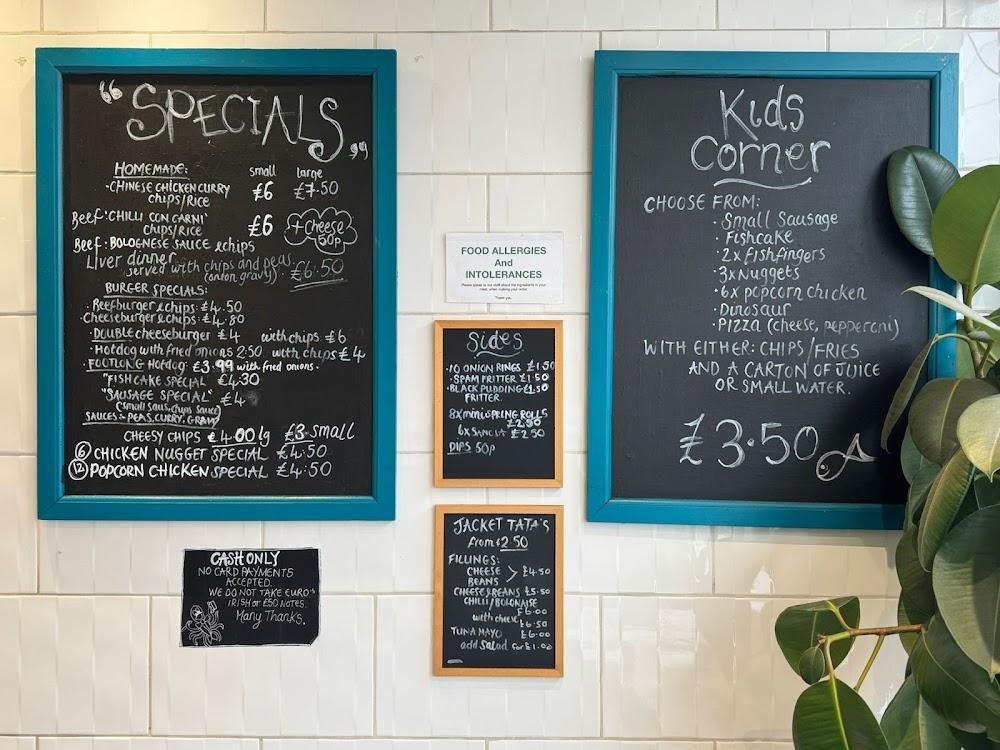 " SPECIALS "
HOMEMADE: small large
·CHINESE CHICKEN CURRY £6 £7.50
chips/RICE
Beef·CHILLI CON CARNI £6 + Cheese
chips/RICE 50p
Beef·BOLOGNESE SAUCE & chips
Liver dinner
served with chips and peas £6.50
(onion gravy)
BURGER SPECIALS:
·Beefburger & chips: £4.50
·Cheeseburger & chips: £4.80
·DOUBLE cheeseburger £4 with chips £6
·Hotdog with fried onions 2.50 with chips £4
·FOOTLONG Hotdog: £3.99 with fried onions.
"FISHCAKE SPECIAL £4.30
"SAUSAGE SPECIAL" £4
(small saus, chips sauce)
SAUCES - PEAS, CURRY, GRAVY
CHEESY CHIPS £4.00 lg £3.small
(6) CHICKEN NUGGET SPECIAL £4.50
(12) POPCORN CHICKEN SPECIAL £4.50
CASH ONLY
NO CARD PAYMENTS
ACCEPTED.
WE DO NOT TAKE EURO's
IRISH or £50 NOTES.
Many Thanks.
FOOD ALLERGIES
And
INTOLERANCES
Please speak to our staff about the ingredients in your
meal, when making your order
Thank you.
Sides
·10 ONION RINGS £1.50
·SPAM FRITTER £1.50
·BLACK PUDDING £1.50
FRITTER.
8x mini SPRING ROLLS
£2.50
6x £2.50
DIPS 50p
JACKET TATA'S
from £2.50
FILLINGS:
CHEESE
BEANS > £4.50
CHEESE & BEANS £5.50
CHILLI/BOLONAISE
£6.00
with cheese £6.50
TUNA MAYO £6.00
add salad for £1.00
Kids
Corner
CHOOSE FROM:
· Small Sausage
· Fishcake
· 2x fishfingers
· 3x Nuggets
· 6x popcorn chicken
· Dinosaur
· PIZZA (cheese, pepperoni)
WITH EITHER: CHIPS/FRIES
AND A CARTON OF JUICE
OR SMALL WATER.
£3.50